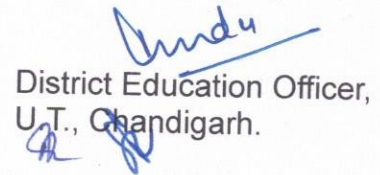 District Education Officer,
U.T., Chandigarh.